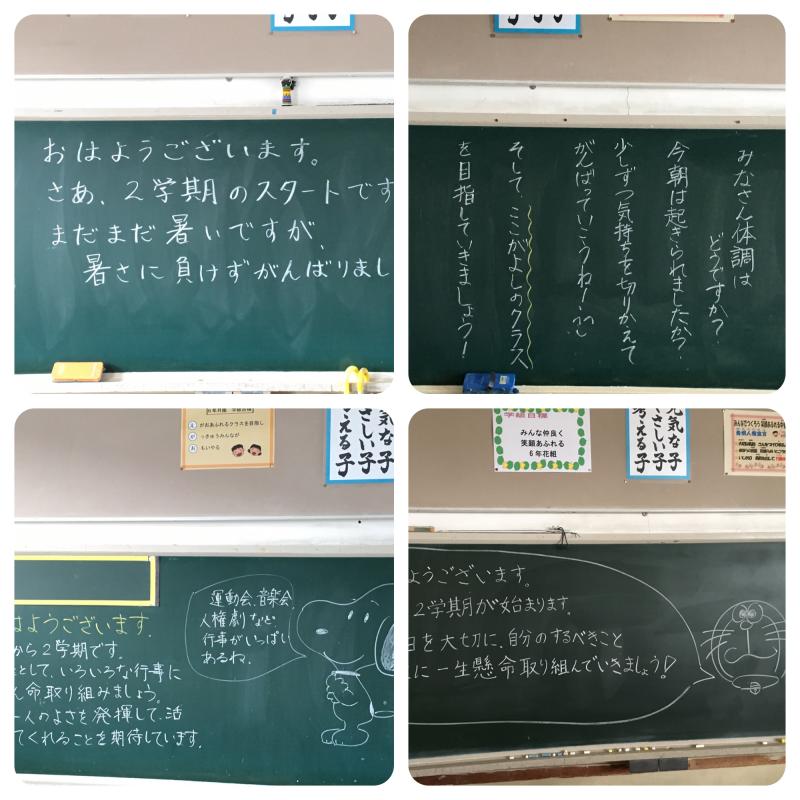 おはようございます。
さあ、2学期のスタートです
まだまだ暑いですが、
暑さに負けずがんばりまし
みなさん体調は
どうですか?
今朝は起きられましたか?
少しずつ気持ちを切りかえて
がんばっていこうね!
そして、ここがよしのクラス
を目指していきましょう!
6年月組 学級目標
え がおあふれるクラスを目指し
が っきゅうみんなが
お もいやる
元気な子
やさしい子
考える子
はようございます。
から2学期です。
として、いろいろな行事に
ん命取り組みましょう。
一人のよさを発揮して、活
てくれることを期待しています。
運動会、音楽会、
人権劇など、
行事がいっぱい
あるね。
学級目標
みんな仲良く
笑顔あふれる
6年花組
元気な子
やさしい子
考える子
ようございます。
2学期が始まります。
日を大切に、自分のするべきこと
に一生懸命取り組んでいきましょう!